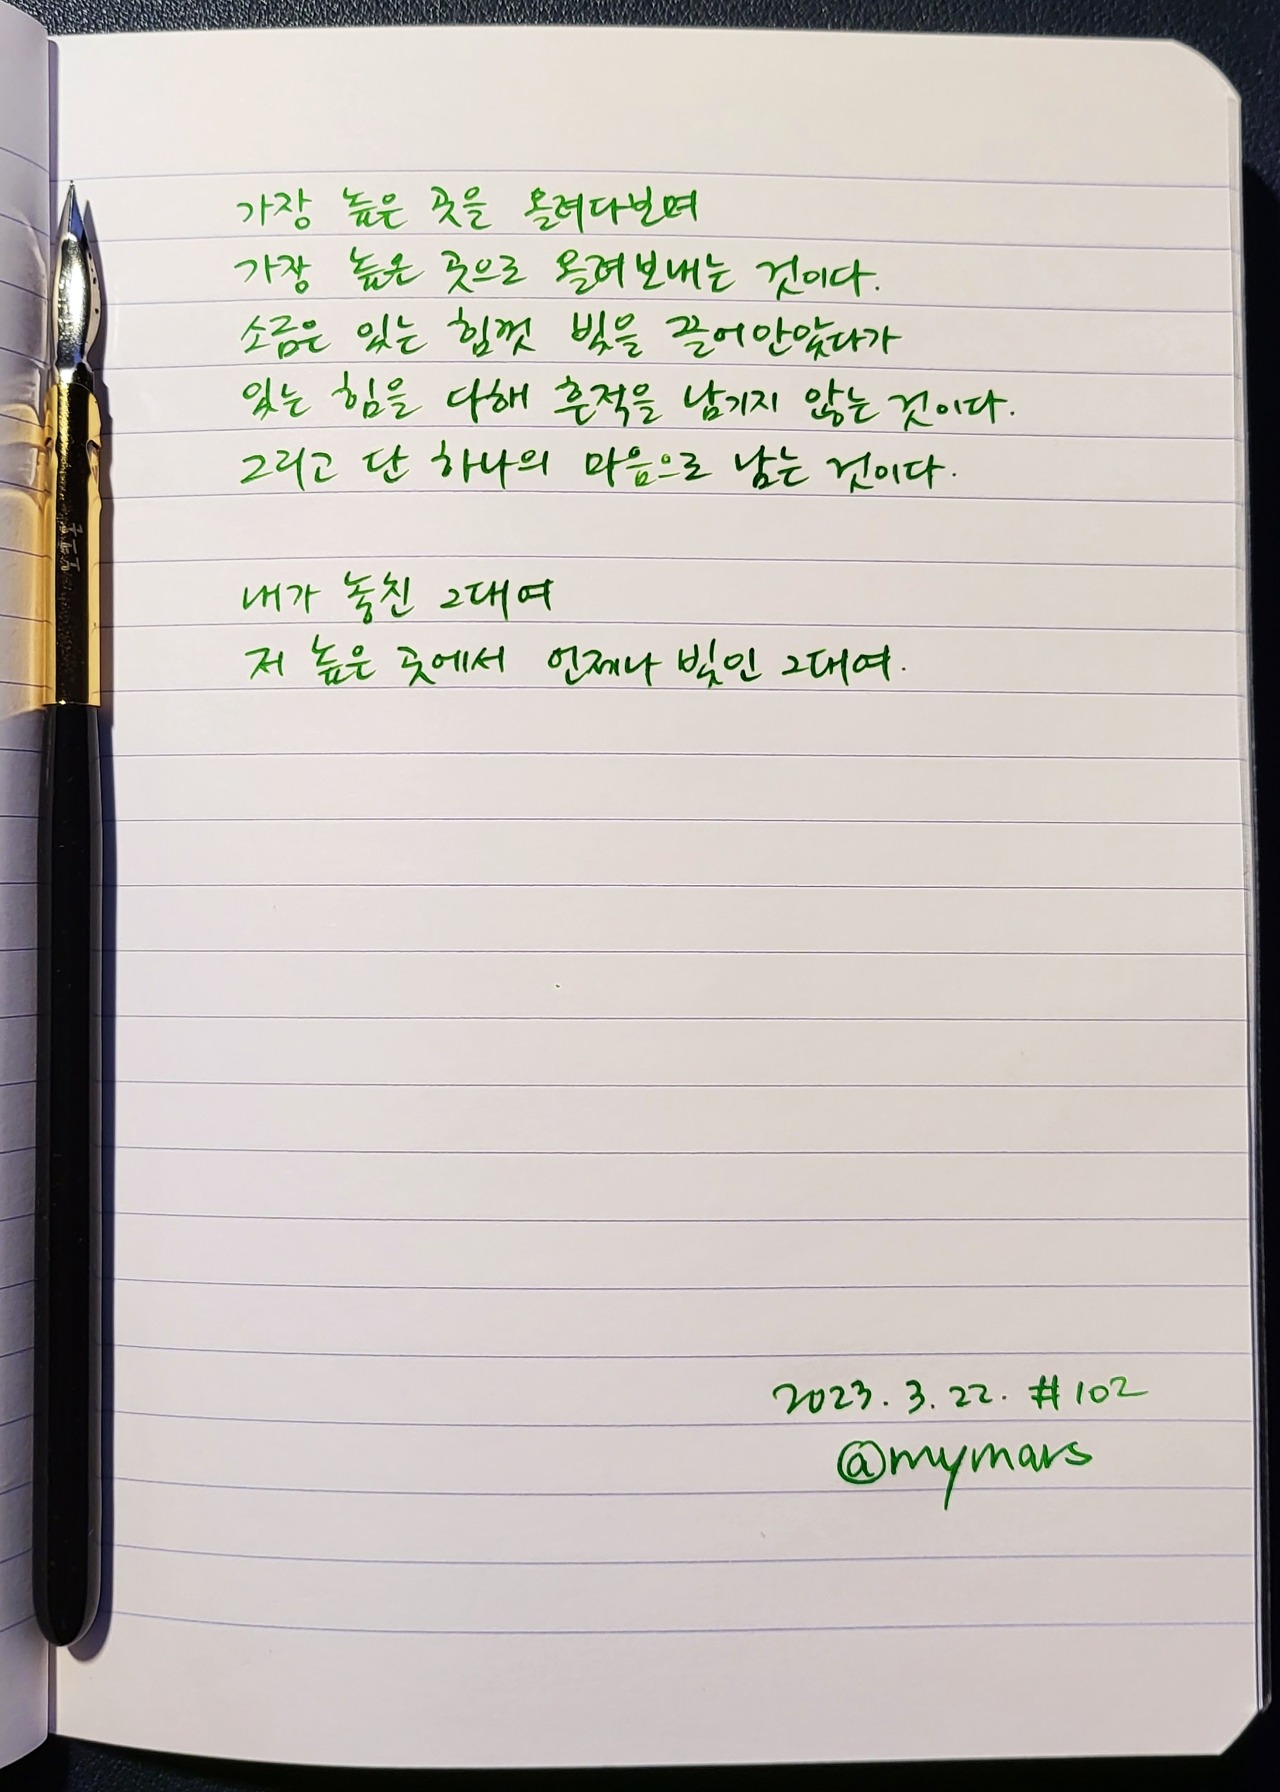 가장 높은 곳을 올려다보며
가장 높은 곳으로 올려보내는 것이다.
소금은 있는 힘껏 빛을 끌어안았다가
있는 힘을 다해 흔적을 남기지 않는 것이다.
그리고 단 하나의 마음으로 남는 것이다.
내가 놓친 그대여
저 높은 곳에서 언제나 빛인 그대여.
2023. 3. 22. #102
@mymars